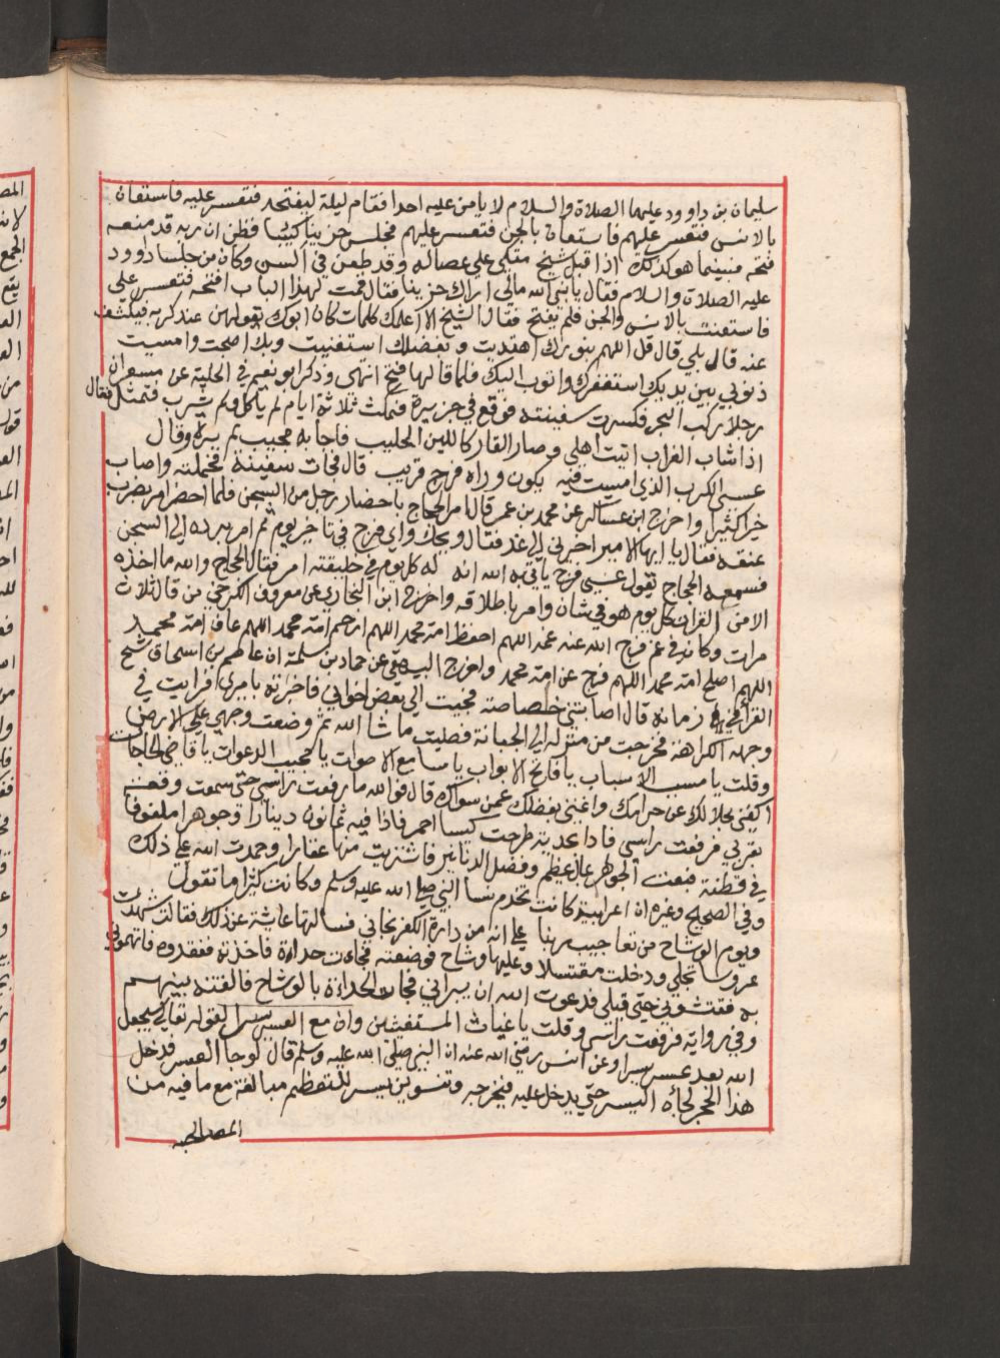 سليمان بن داوود عليهما الصلاة والسلام لا يامن عليه احدا فقام ليلة ليفتحه فتعسر عليه فاستعان
بالانس فتعسر عليهم فاستعان بالجن فتعسر عليهم فجلس حزينا كئيبا فظن ان ربه قد منعه
فتحه فبينما هو كذلك اذا قبل شيخ متكي على عصا له وقد طعن في السن وكان من جلسا داوود
عليه الصلاة والسلام فقال يا نبي الله مالي اراك حزينا فقال قمت لهذا الباب افتحه فتعسر على
فاستعنت بالانس والجن فلم يفتح فقال الشيخ الا اعلمك كلمات كان ابوك يقولهن عند كربه فيكشف
عنه قال بلي قال قل اللهم بنورك اهتديت وبفضلك استغنيت وبك اصبحت وامسيت
ذنوبي بين يديك استغفرك واتوب اليك فلما قالها فتح انتهى وذكر ابو نعيم في الحلية عن مسعر ان
رجلا ركب البحر فكسرت سفينته فوقع في جزيرة فمكث ثلاثة ايام لم ياكل ولم يشرب فتمثل فقال
اذا شاب الغراب اتيت اهلي وصار القار كاللبن الحليب فاجابه مجيب لم يره وقال
عسى الكرب الذي امسيت فيه يكون وراه فرج قريب قال فجات سفينة فحملته واصاب
خيرا كثيرا واخرج ابن عساكر عن محمد بن عمر قال امر الحجاج باحضار رجل من السجن فلما احضر امر بضرب
عنقه فقال يا ايها الامير اخرني الى غد فقال ويحك واي فرج في تاخير يوم ثم امر برده الى السجن
فسمعه الحجاج يقول عسى فرج ياتي به الله انه له كل يوم في خليقته امر فقال الحجاج والله ما اخذه
الا من القران كل يوم هو في شان وامر باطلاقه واخرج ابن النجار عن معروف الكرخي من قال ثلاث
مرات وكان في غم فرج الله عنه غمه اللهم احفظ امة محمد اللهم ارحم امة محمد اللهم عاف امة محمد
اللهم اصلح امة محمد اللهم فرج عن امة محمد واخرج البيهقي عن حماد بن سلمة ان عاصم بن اسحاق شيخ
القرا في زمانه قال اصابتني خصاصة فجيت الى بعض اخواني فاخبرته بامري فرايت في
وجهه الكراهة فخرجت من منزله الى الجبانة فصليت ما شا الله ثم وضعت وجهي على الارض
وقلت يا مسبب الاسباب يا فاتح الابواب يا سامع الاصوات يا مجيب الدعوات يا قاضي الحاجات
اكفني بحلالك عن حرامك واغنني بفضلك عمن سواك قال فوالله ما رفعت راسي حتى سمعت وقعة
بقربي فرفعت راسي فاذا حدية طرحت كيسا احمر فاذا فيه ثمانون دينارا وجوهرا ملفوفا
في قطنة فبعت الجوهر بمال عظيم وفضل الدنانير فاشتريت منها عقارا وحمدت الله على ذلك
وفي الصحيح وغيره ان اعرابية كانت تخدم نسا النبي صلى الله عليه وسلم وكانت كثيرا ما تقول
ويوم الوشاح من تعاجيب ربنا على انه من دارة الكفر نجاني فسالتها عايشة عن ذلك فقالت شهدت
عروسا تجلى ودخلت مغتسلا وعليها وشاح فوضعته فجاءت حداءة فاخذته ففقدوه فاتهموني
به ففتشوني حتى قبلي فدعوت الله ان يبراني فجات الحداءة بالوشاح فالقته بينهم
وفي رواية فرفعت راسي وقلت يا غياث المستغيثين وان مع العسر يسرا لقوله تعالى سيجعل
الله بعد عسر يسرا وعن انس رضي الله عنه ان النبي صلى الله عليه وسلم قال لو جا العسر فدخل
هذا الحجر لجاه اليسر حتى يدخل عليه فيخرجه وتنوين يسر للتعظيم مبالغة مع ما فيه من